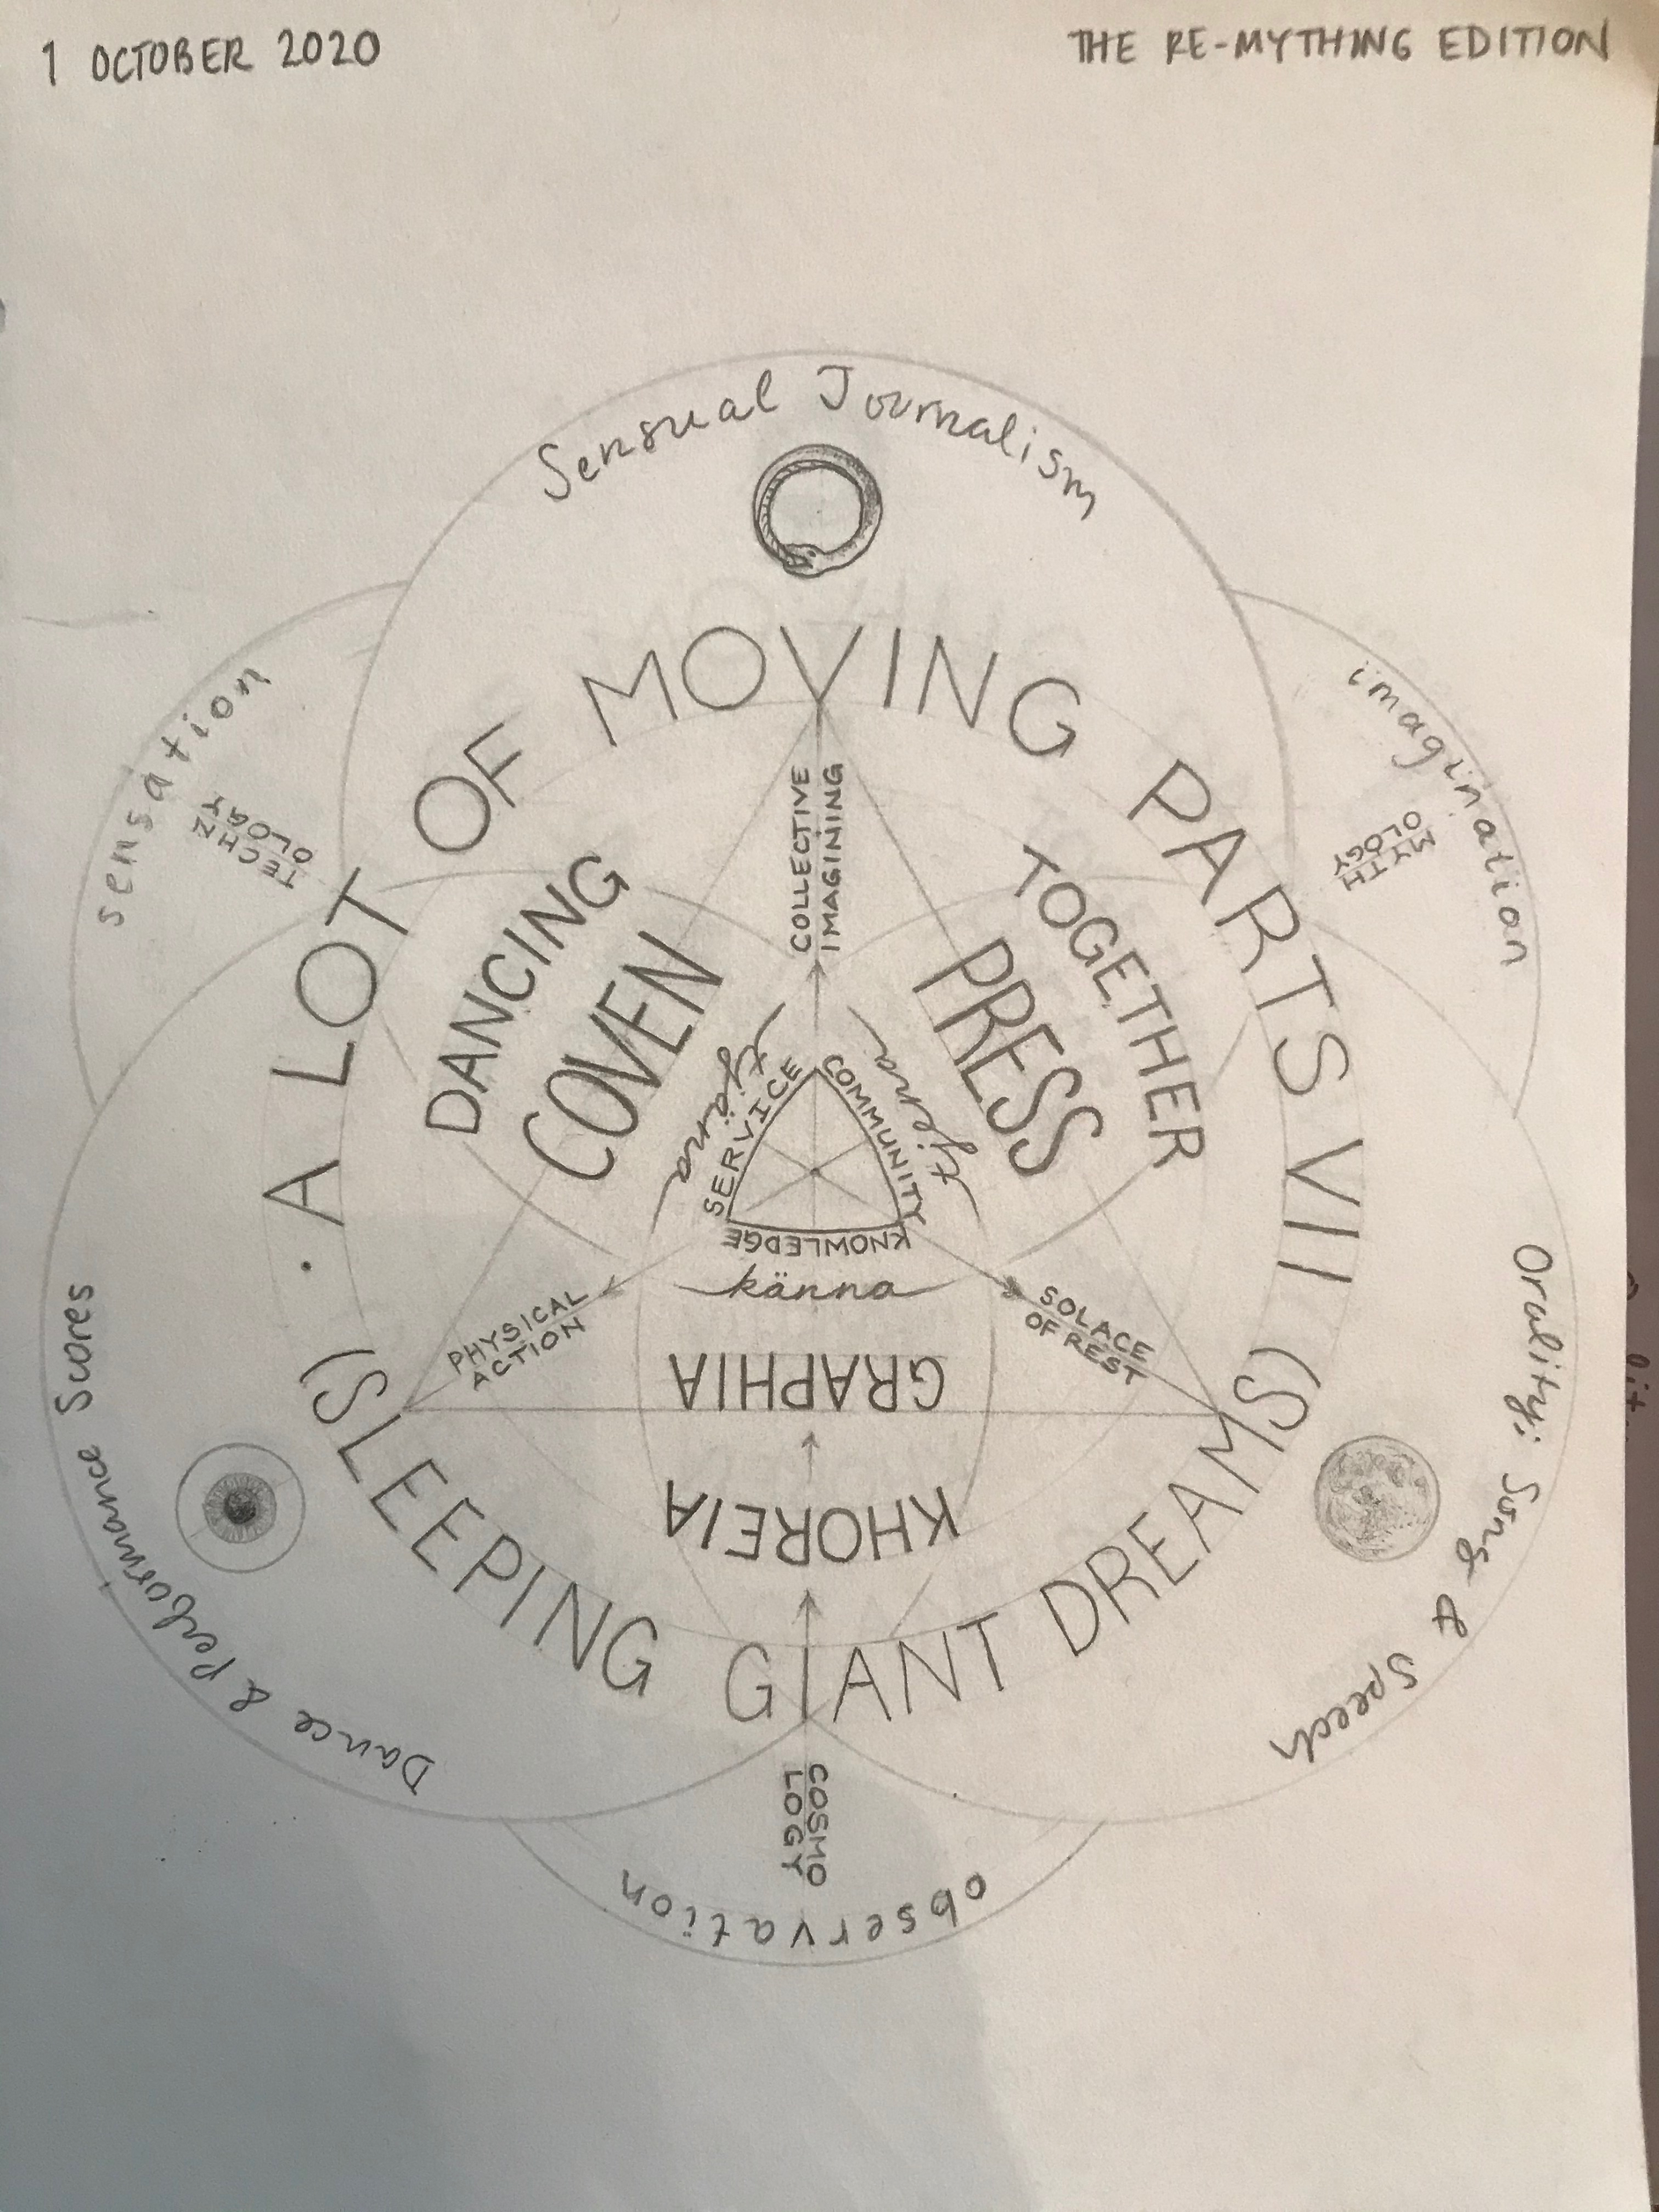 1 OCTOBER 2020
THE RE-MYTHING EDITION
Sensual Journalism
sensation
TECHN
OLOGY
imagination
MYTH
OLOGY
· A LOT OF MOVING PARTS VII
(SLEEPING GIANT DREAMS)
COLLECTIVE
IMAGINING
DANCING
COVEN
TOGETHER
PRESS
tjäna
SERVICE
COMMUNITY
KNOWLEDGE
känna
PHYSICAL
ACTION
SOLACE
OF REST
KHOREIA
GRAPHIA
Dance & Performance Scores
Orality: Song & Speech
COSMO
LOGY
observation